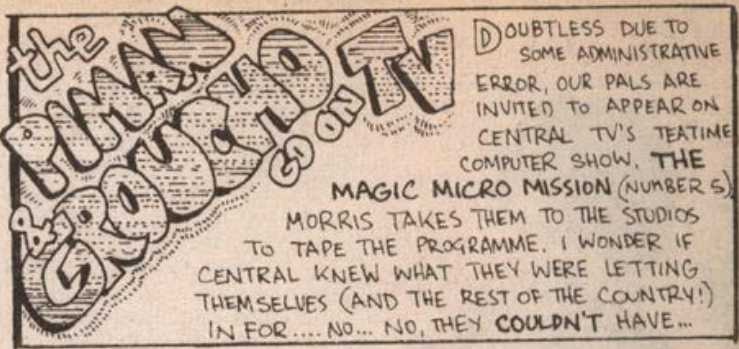 the
PIMAN
& GROUCHO
GO ON TV
DOUBTLESS DUE TO
SOME ADMINISTRATIVE
ERROR, OUR PALS ARE
INVITED TO APPEAR ON
CENTRAL TV'S TEATIME
COMPUTER SHOW, THE
MAGIC MICRO MISSION (NUMBER 5)
MORRIS TAKES THEM TO THE STUDIOS
TO TAPE THE PROGRAMME. I WONDER IF
CENTRAL KNEW WHAT THEY WERE LETTING
THEMSELVES (AND THE REST OF THE COUNTRY!)
IN FOR.... NO... NO, THEY COULDN'T HAVE...